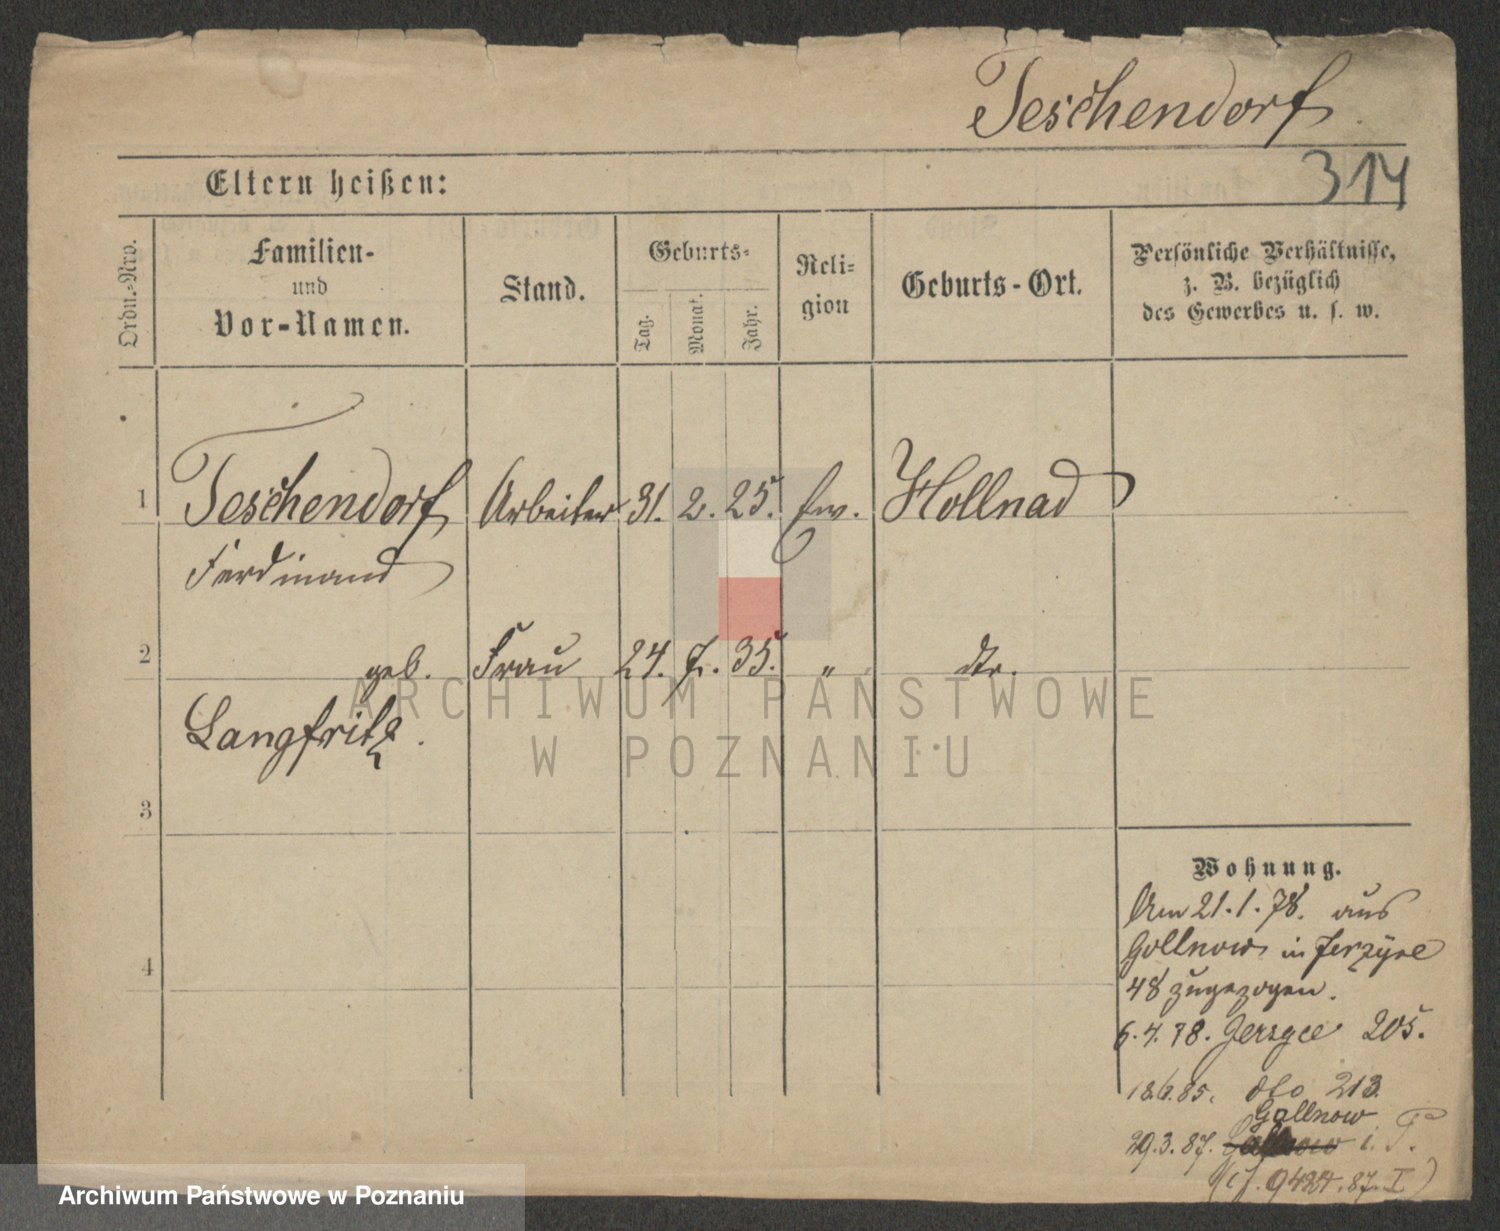 Teschendorf.
314
Eltern heißen:
Ordn.-Nro.
Familien-
und
Vor-Namen.
Stand.
Geburts-
Tag.
Monat.
Jahr.
Reli-
gion
Geburts-Ort.
Persönliche Verhältnisse,
z. B. bezüglich
des Gewerbes u. s. w.
1 Teschendorf Arbeiter 31. 2. 25. ew. Hollnad
Ferdinand
2 geb. Frau 24. 7. 35. " dto.
Langfritz.
ARCHIWUM PAŃSTWOWE
W POZNANIU
3
4
Wohnung.
Am 21.1.78. aus
Gollnow in Jerzyce
48 zugezogen.
6.4.78. Jerzyce 205.
18.6.85. dto 213.
Gollnow
29.3.87. i. P.
87. I)
Archiwum Państwowe w Poznaniu